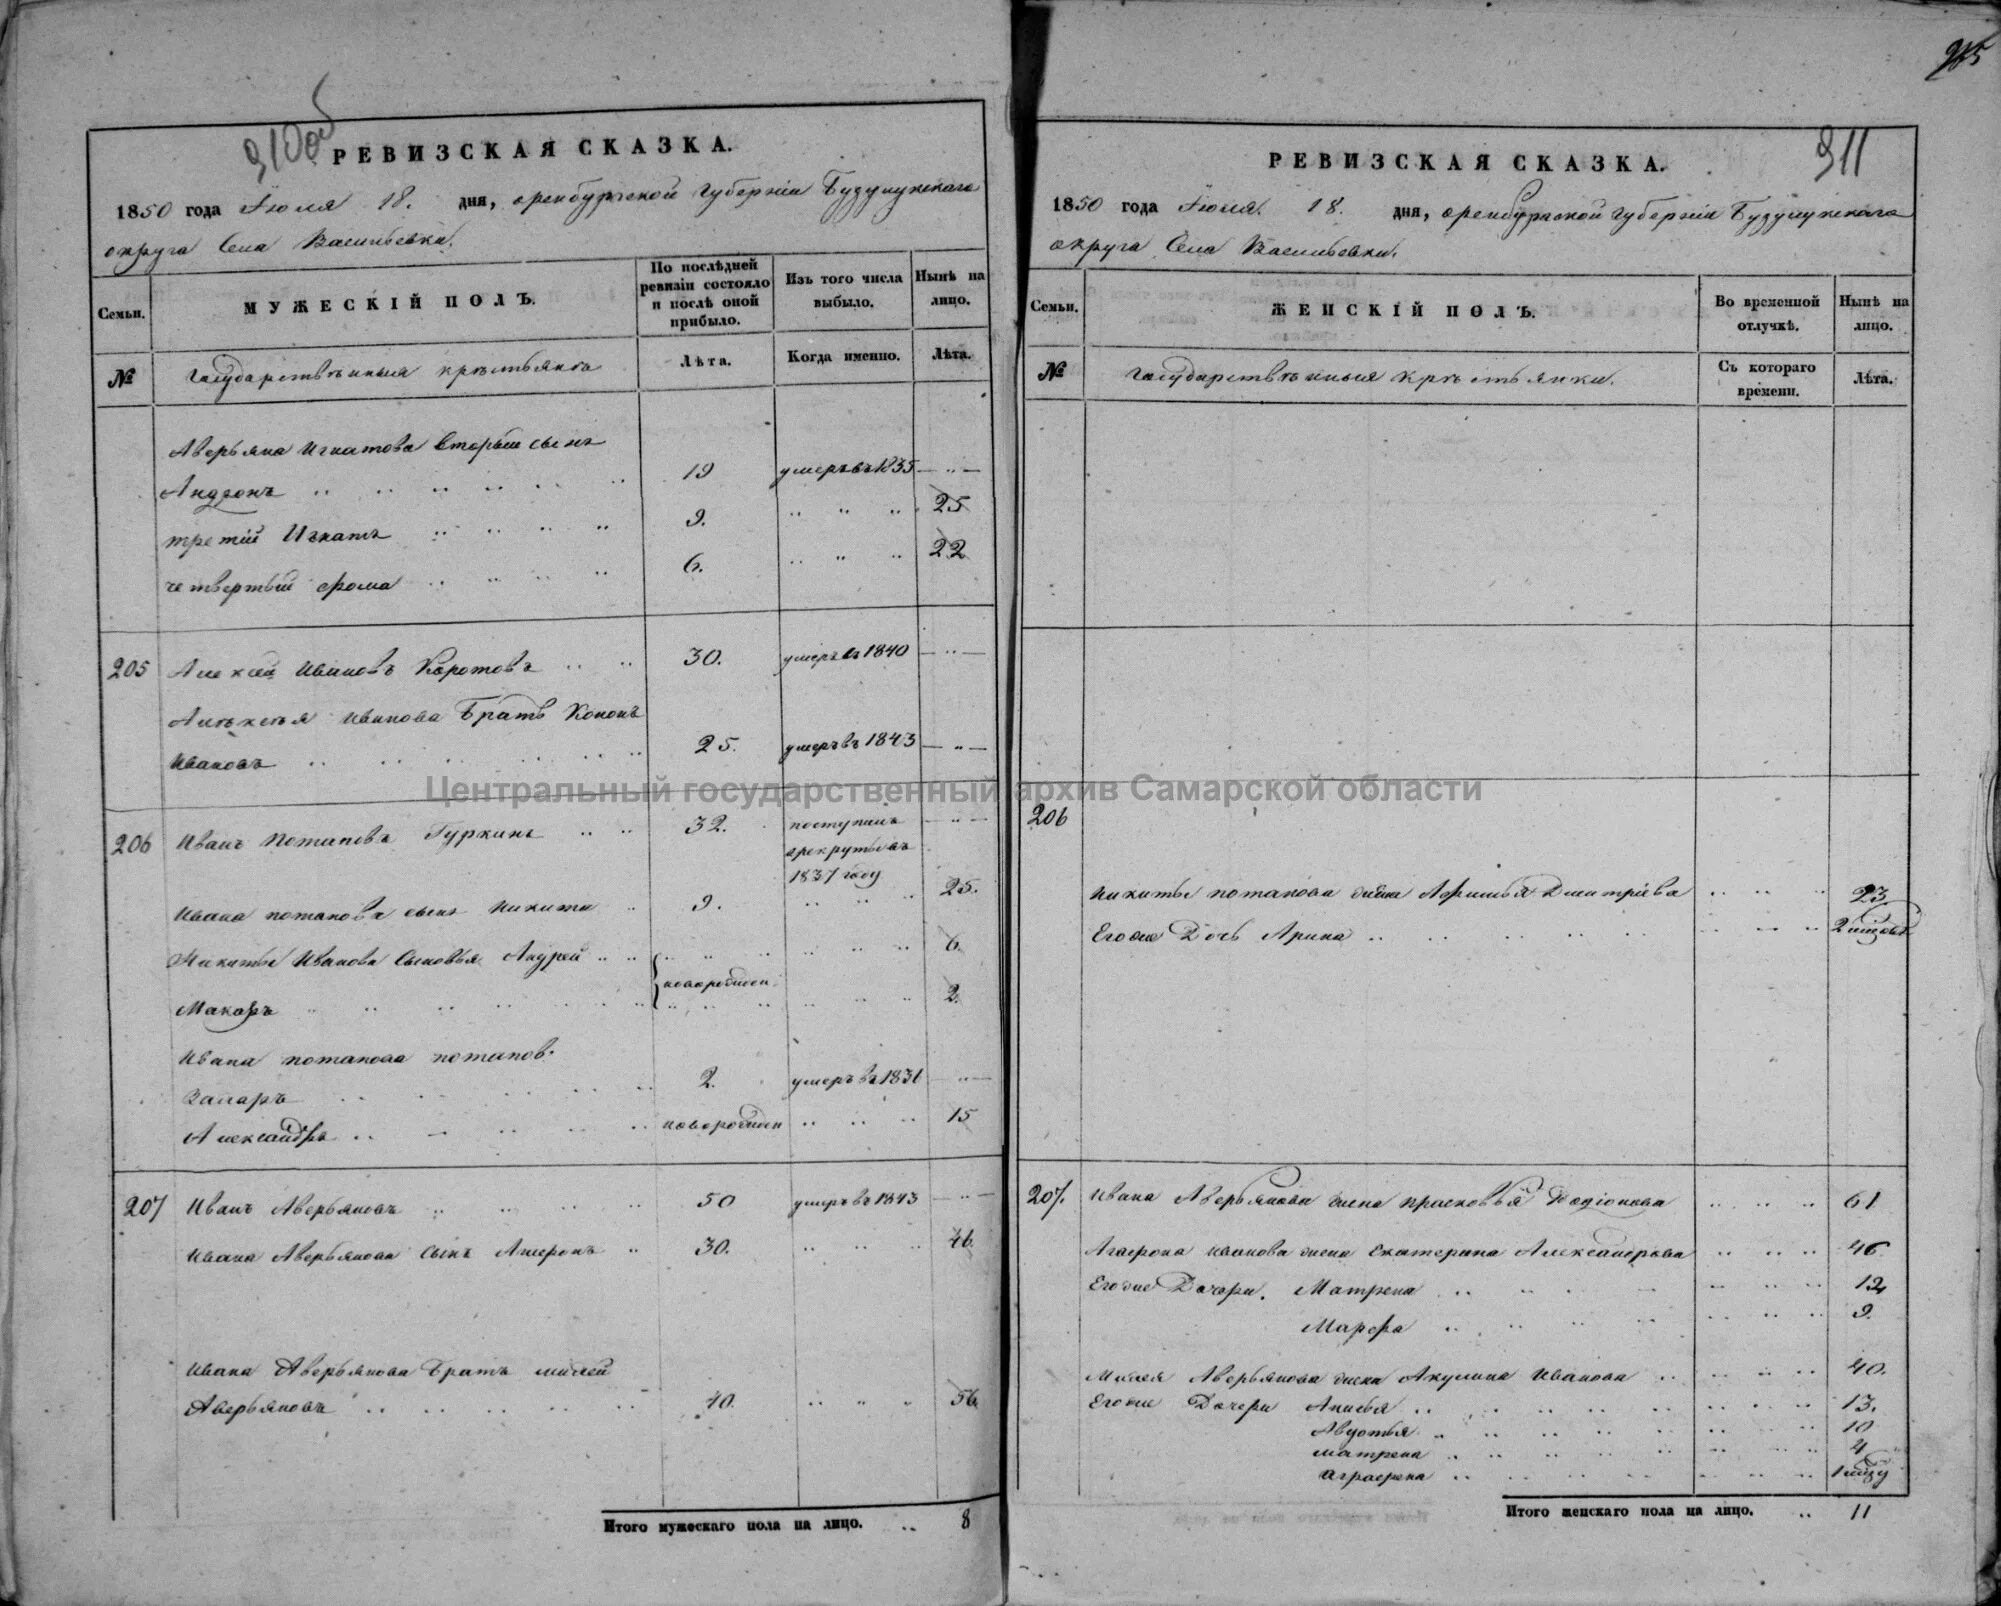 310об
РЕВИЗСКАЯ СКАЗКА.
1850 года Июля 18. дня, оренбургской губерніи Бузулукскаго
округа Села Васильевки.
Семьи.
МУЖЕСКІЙ ПОЛЪ.
По послѣдней ревизіи состояло и послѣ оной прибыло.
Изъ того числа выбыло.
Нынѣ на лицо.
№
Государственныя крестьянѣ
Лѣта.
Когда именно.
Лѣта.
Аверьяна Игнатова вторый сынъ
Андронъ 19 умеръ въ 1835
третій Игнатъ 9. 25
четвертый фома 6. 22
205 Алексей Ивановъ Коротовъ 30. умеръ въ 1840
Алексея Иванова Братъ Кононъ
Ивановъ 25. умеръ въ 1843
206 Иванъ Потаповъ Гуркинъ 32. поступилъ
в рекруты въ
1837 году
Ивана потапова сынъ Никита 9. 25.
Никиты Иванова Сыновья Андрей 6.
новорожден
Макаръ 2.
Ивана потапова потапов.
Захаръ 2. умеръ въ 1831
Александръ новорожден 15
207 Иванъ Аверьяновъ 50 умеръ въ 1843
Ивана Аверьянова Сынъ Агафонъ 30. 46.
Ивана Аверьянова Братъ милей
Аверьяновъ 40. 56.
Итого мужескаго пола на лицо. 8
Центральный государственный архив Самарской области
311
РЕВИЗСКАЯ СКАЗКА.
1850 года Июля. 18. дня, оренбургской губерніи Бузулукскаго
округа Села Васильевки.
Семьи.
ЖЕНСКІЙ ПОЛЪ.
Во временной отлучкѣ.
Нынѣ на лицо.
№
Государственныя крестьянки.
Съ котораго времени.
Лѣта.
206
Никиты потапова жена Афимья Дмитріева 23
Его же Дочь Арина 2 мѣсяц.
207. Ивана Аверьянова жена прасковья Родіонова 61
Агафона иванова жена Екатерина Александрова 46.
Его же Дочери. Матрена 12
Марфа 9.
Милея Аверьянова жена Акулина Иванова 40.
Его же Дочери Анисья 13.
Авдотья 10
матрена 4
аграфена 1 году
Итого женскаго пола на лицо. 11